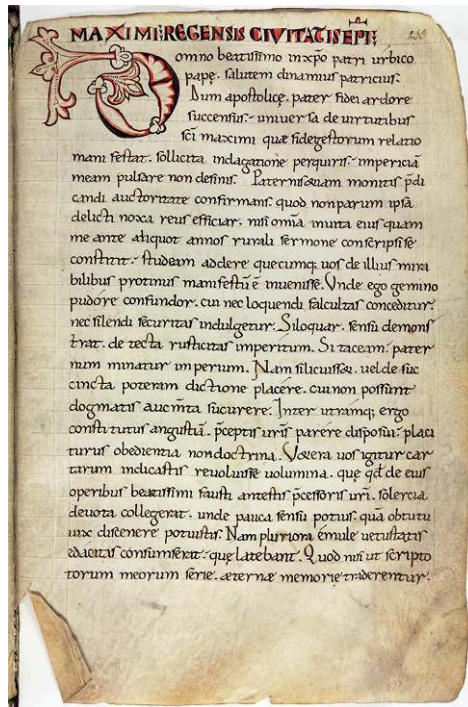 MAXIMI: REGENSIS CIVITATIS EPI:
233
Domno beatissimo inxpo patri urbico
papę. salutem dinamius patricius.
Dum apostolicę. pater fidei ardore
succensus. uniuersa de uirtutibus
sci maximi quae fidegestorum relatio
mani festat. sollicita indagatione perquiris. impericiā
meam pulsare non desinis. Paternisquam monitis pdi
candi auctoritate confirmans. quod nonparum ipsa
delicti noxa reus efficiar. nisi omia inuita eius quam
me ante aliquot annos rurali sermone conscripsisse
constitit. studeam addere quecumq; uos de illius mira
bilibus protinus manifestū ē inuenisse. Unde ego gemino
pudore confundor. cui nec loquendi facultas conceditur.
nec silendi securitas indulgetur. Siloquar. sensū demons
trat. de tecta rusticitas imperitum. Si taceam. pater
num minatur imperium. Nam siliuisse. uel de suc
cincta poteram dictione placere. cui non possunt
dogmatis aucmta sucurere. Inter utramq; ergo
constitutus angustiā. pceptis uris parere disposui. placi
turus obedientia non doctrina. Uerera uos igitur car
tarum indicastis reuoluisse uolumina. quę qd de eius
operibus beatissimi fausti antestis pcessoris uri. solercia
deuota collegerat. unde pauca sensu potius. quā obtutu
uix discenere potuistis. Nam pluriora emule uetustatis
edacitas consumserat. quę latebant. Quod nisi ut scripto
torum meorum serie. aeternae memorię traderentur.